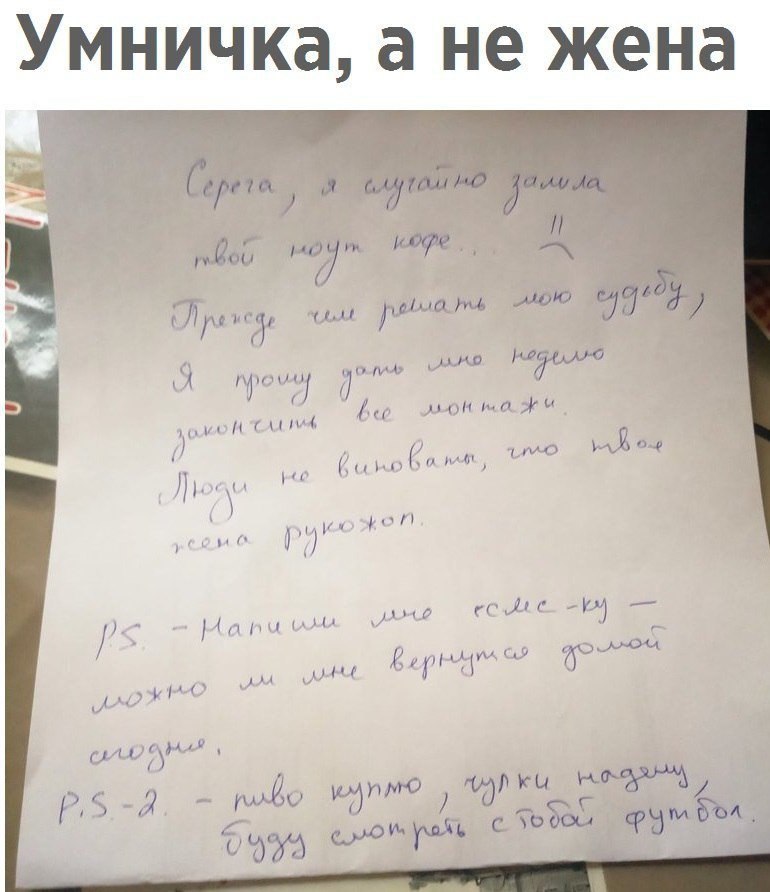 Умничка, а не жена
Серега, я случайно залила
твой ноут кофе... :(
Прежде чем решать мою судьбу,
Я прошу дать мне неделю
закончить все монтажи.
Люди не виноваты, что твоя
жена рукожоп.
P.S. - Напиши мне смс-ку -
можно ли мне вернутся домой
сегодня.
P.S.-2. - пиво куплю, чулки надену,
буду смотреть с тобой футбол.